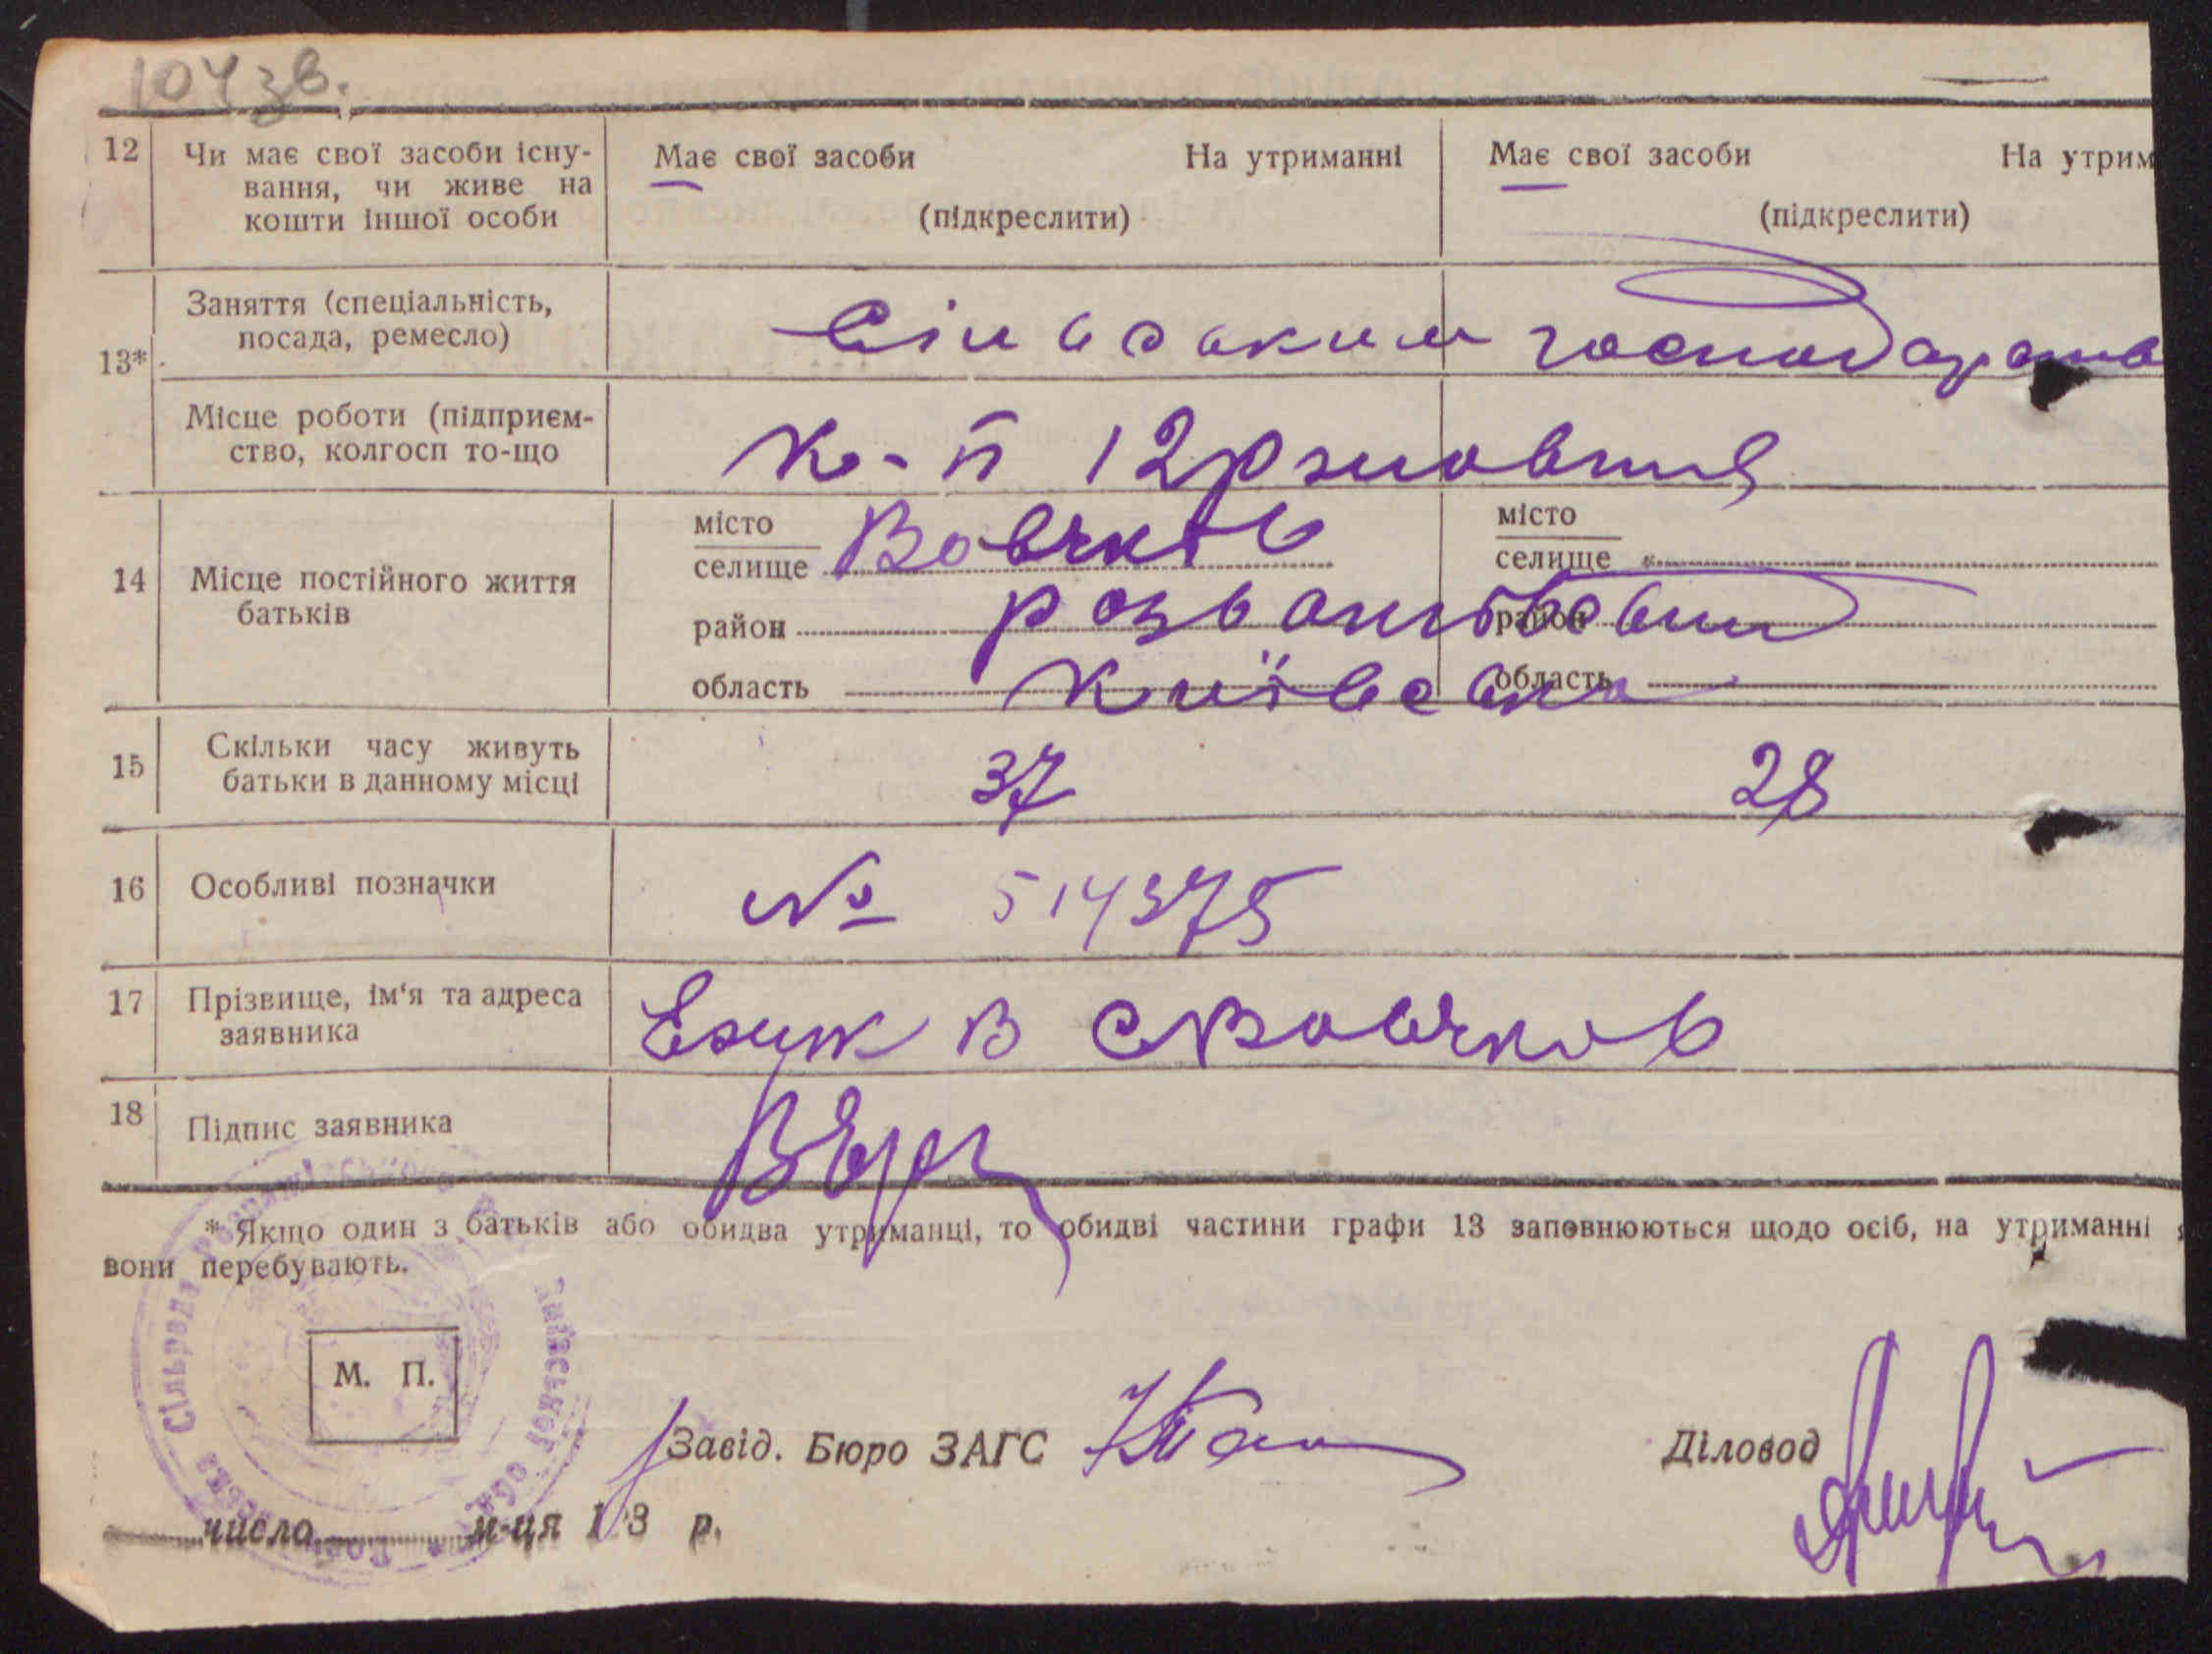 104 зв.
12 Чи має свої засоби існу- Має свої засоби На утриманні Має свої засоби На утрим
вання, чи живе на
кошти іншої особи (підкреслити) (підкреслити)
Заняття (спеціальність,
посада, ремесло) господарств
13*
Місце роботи (підприєм-
ство, колгосп то-що к-п 12р жовтня
місто Вовчків місто
селище селище
14 Місце постійного життя
батьків
район район
область Київська область
15 Скільки часу живуть
батьки в данному місці 37 28
16 Особливі позначки № 514375
17 Прізвище, ім'я та адреса
заявника В с Вовчков
18 Підпис заявника
* Якщо один з батьків або обидва утриманці, то обидві частини графи 13 заповнюються щодо осіб, на утриманні
вони перебувають.
Сільрада
Київської області
М. П.
Завід. Бюро ЗАГС
Діловод
числа м-ця 193 р.